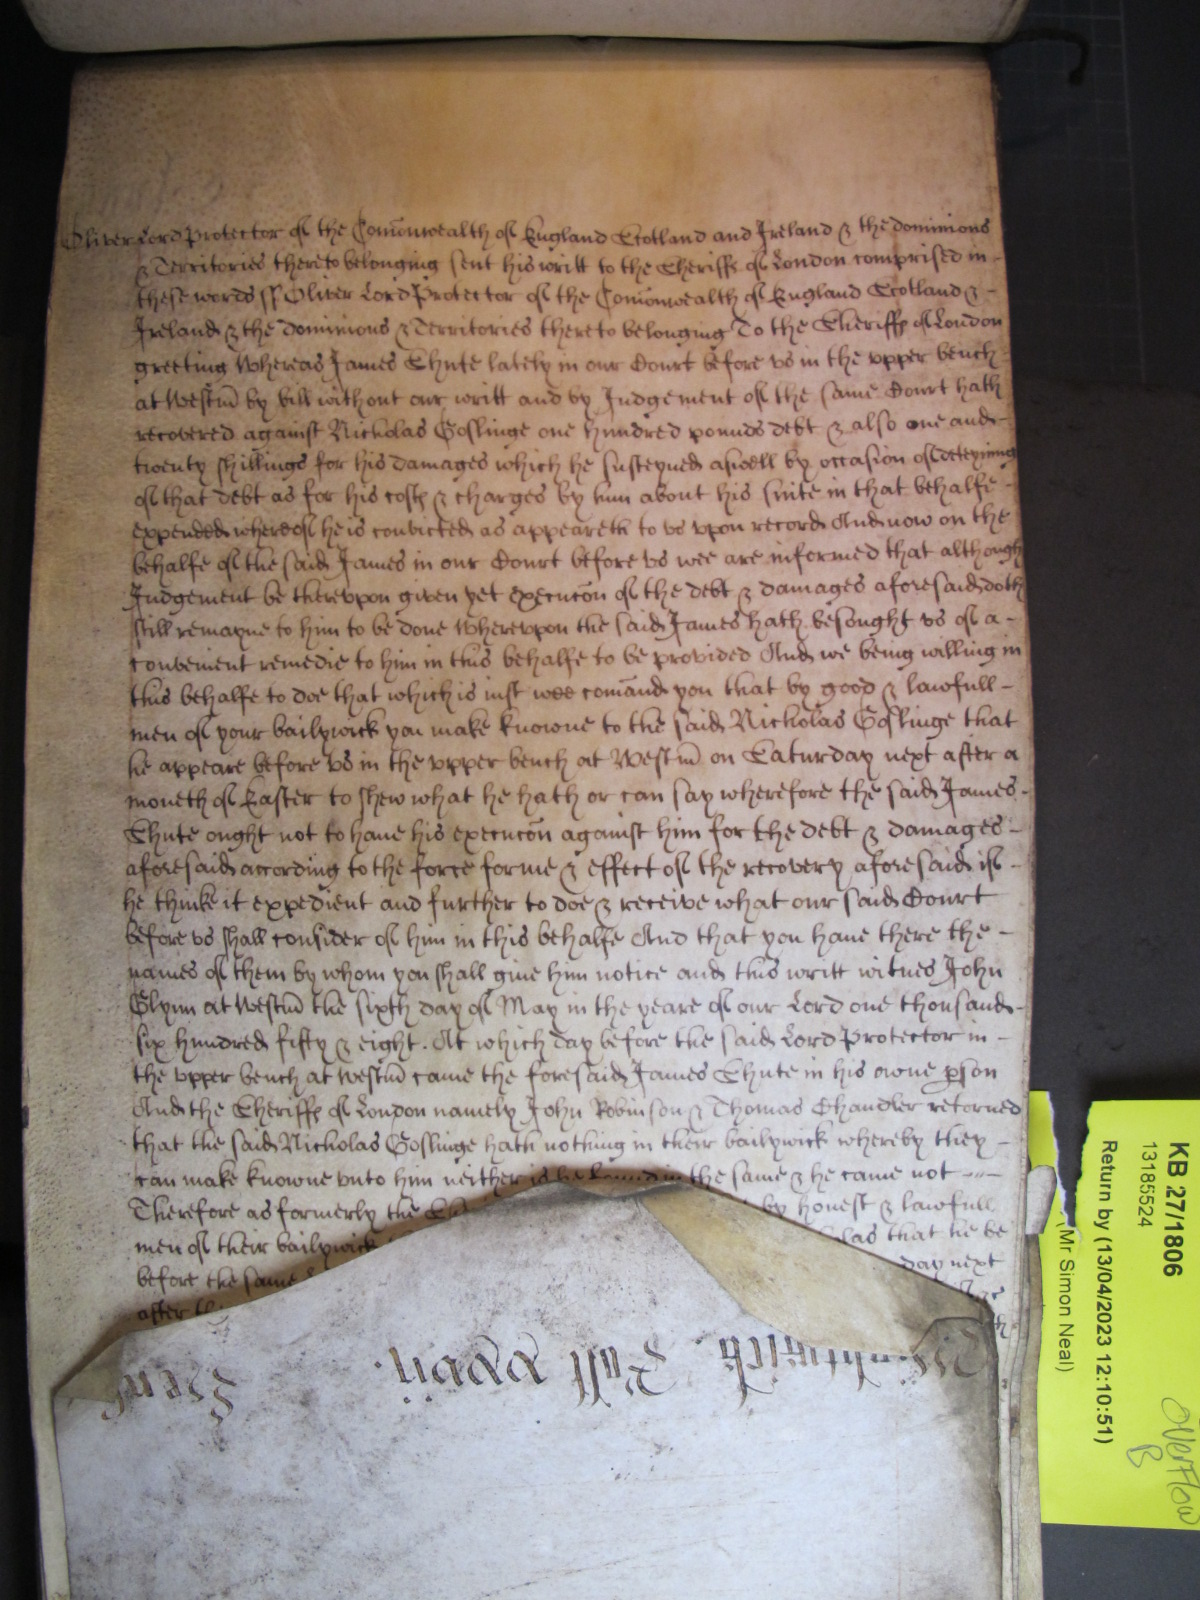 Oliver Lord Protector of the Com̄onwealth of England Scotland and Ireland & the dominions
& Territories thereto belonging sent his writt to the Sheriffs of London comprised in -
these words ss Oliver Lord Protector of the Com̄onwealth of England Scotland & -
Ireland & the dominions & Territories thereto belonging To the Sheriffs of London
greeting Whereas James Chute lately in our Court before vs in the vpper bench
at Westm̄ by bill without our writt and by Judgement of the same Court hath
recovered against Nicholas Goslinge one hundred pounds debt & also one and
twenty shillings for his damages which he susteyned aswell by occasion of deteyning
of that debt as for his costs & charges by him about his suite in that behalfe -
expended whereof he is convicted as appeareth to vs vpon record And now on the
behalfe of the said James in our Court before vs wee are informed that although
Judgement be therevpon given yet execuc̄on of the debt & damages aforesaid doth
still remayne to him to be done Wherevpon the said James hath besought vs of a -
convenient remedie to him in this behalfe to be provided And we being willing in
this behalfe to doe that which is iust wee com̄and you that by good & lawfull -
men of your bailywick you make knowne to the said Nicholas Goslinge that
he appeare before vs in the vpper bench at Westm̄ on Saturday next after a
moneth of Easter to shew what he hath or can say wherefore the said James -
Chute ought not to haue his execuc̄on against him for the debt & damages -
aforesaid according to the force forme & effect of the recovery aforesaid if -
he thinke it expedient and further to doe & receive what our said Court
before vs shall consider of him in this behalfe And that you haue there the -
names of them by whom you shall give him notice and this writt witnes John
Glynn at Westm̄ the sixth day of May in the yeare of our Lord one thousand -
six hundred fifty & eight . At which day before the said Lord Protector in -
the vpper bench at Westm̄ came the foresaid James Chute in his owne p̱son
And the Sheriffs of London namely John Robinson & Thomas Chandler retorned
that the said Nicholas Goslinge hath nothing in their bailywick whereby they -
can make knowne vnto him neither is he found in the same & he came not ---
Therefore as formerly the by honest & lawfull
men of their bailywick that he be
before the same day next
after
KB 27/1806
13185524
Return by (13/04/2023 12:10:51)
(Mr Simon Neal)
Overflow
B